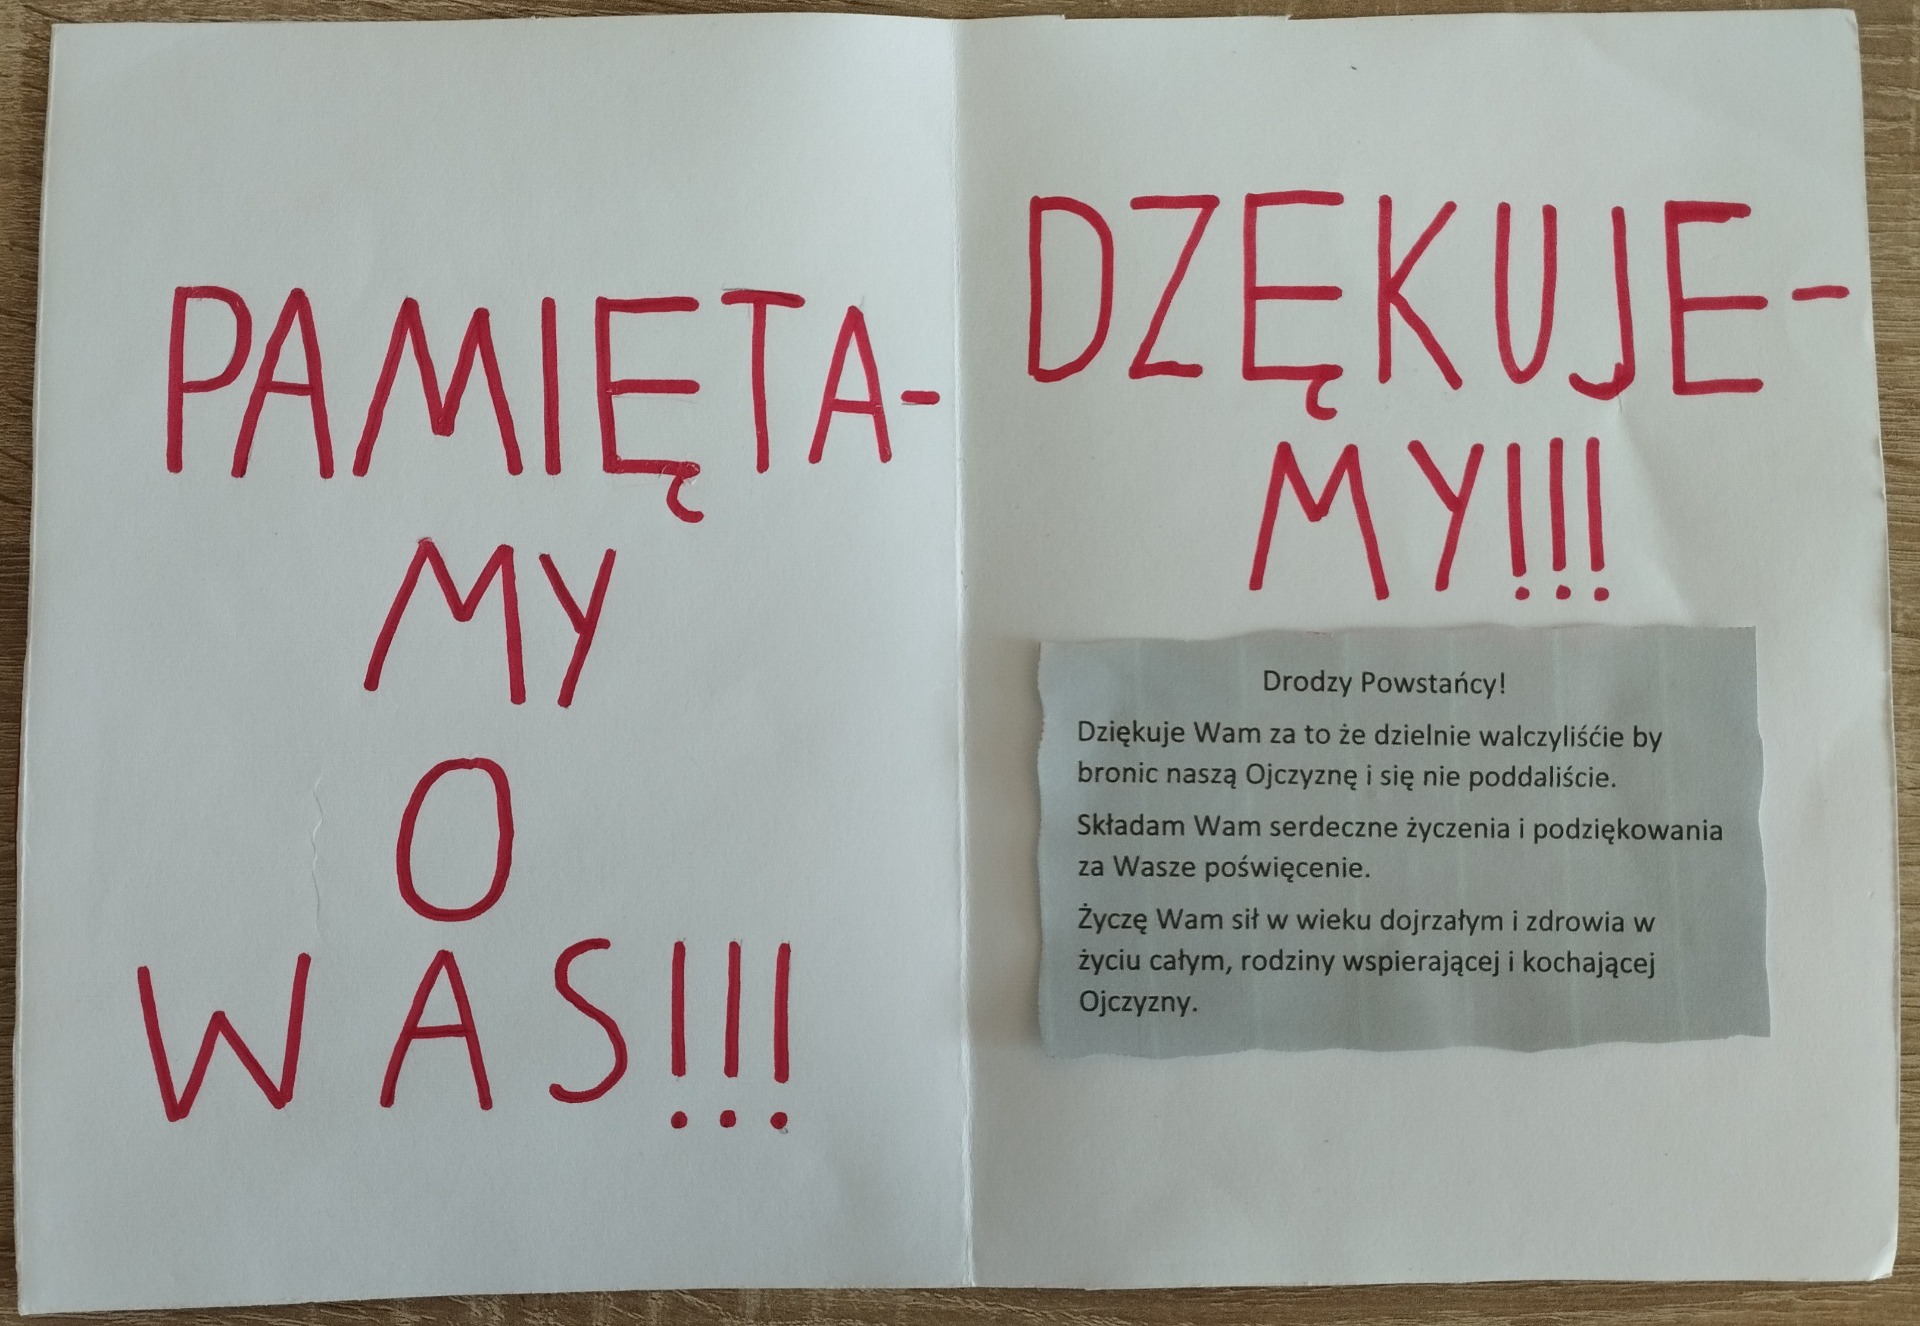 PAMIĘTA-
MY
O
WAS!!!
DZĘKUJE-
MY!!!
Drodzy Powstańcy!
Dziękuje Wam za to że dzielnie walczyliśćie by
bronic naszą Ojczyznę i się nie poddaliście.
Składam Wam serdeczne życzenia i podziękowania
za Wasze poświęcenie.
Życzę Wam sił w wieku dojrzałym i zdrowia w
życiu całym, rodziny wspierającej i kochającej
Ojczyzny.